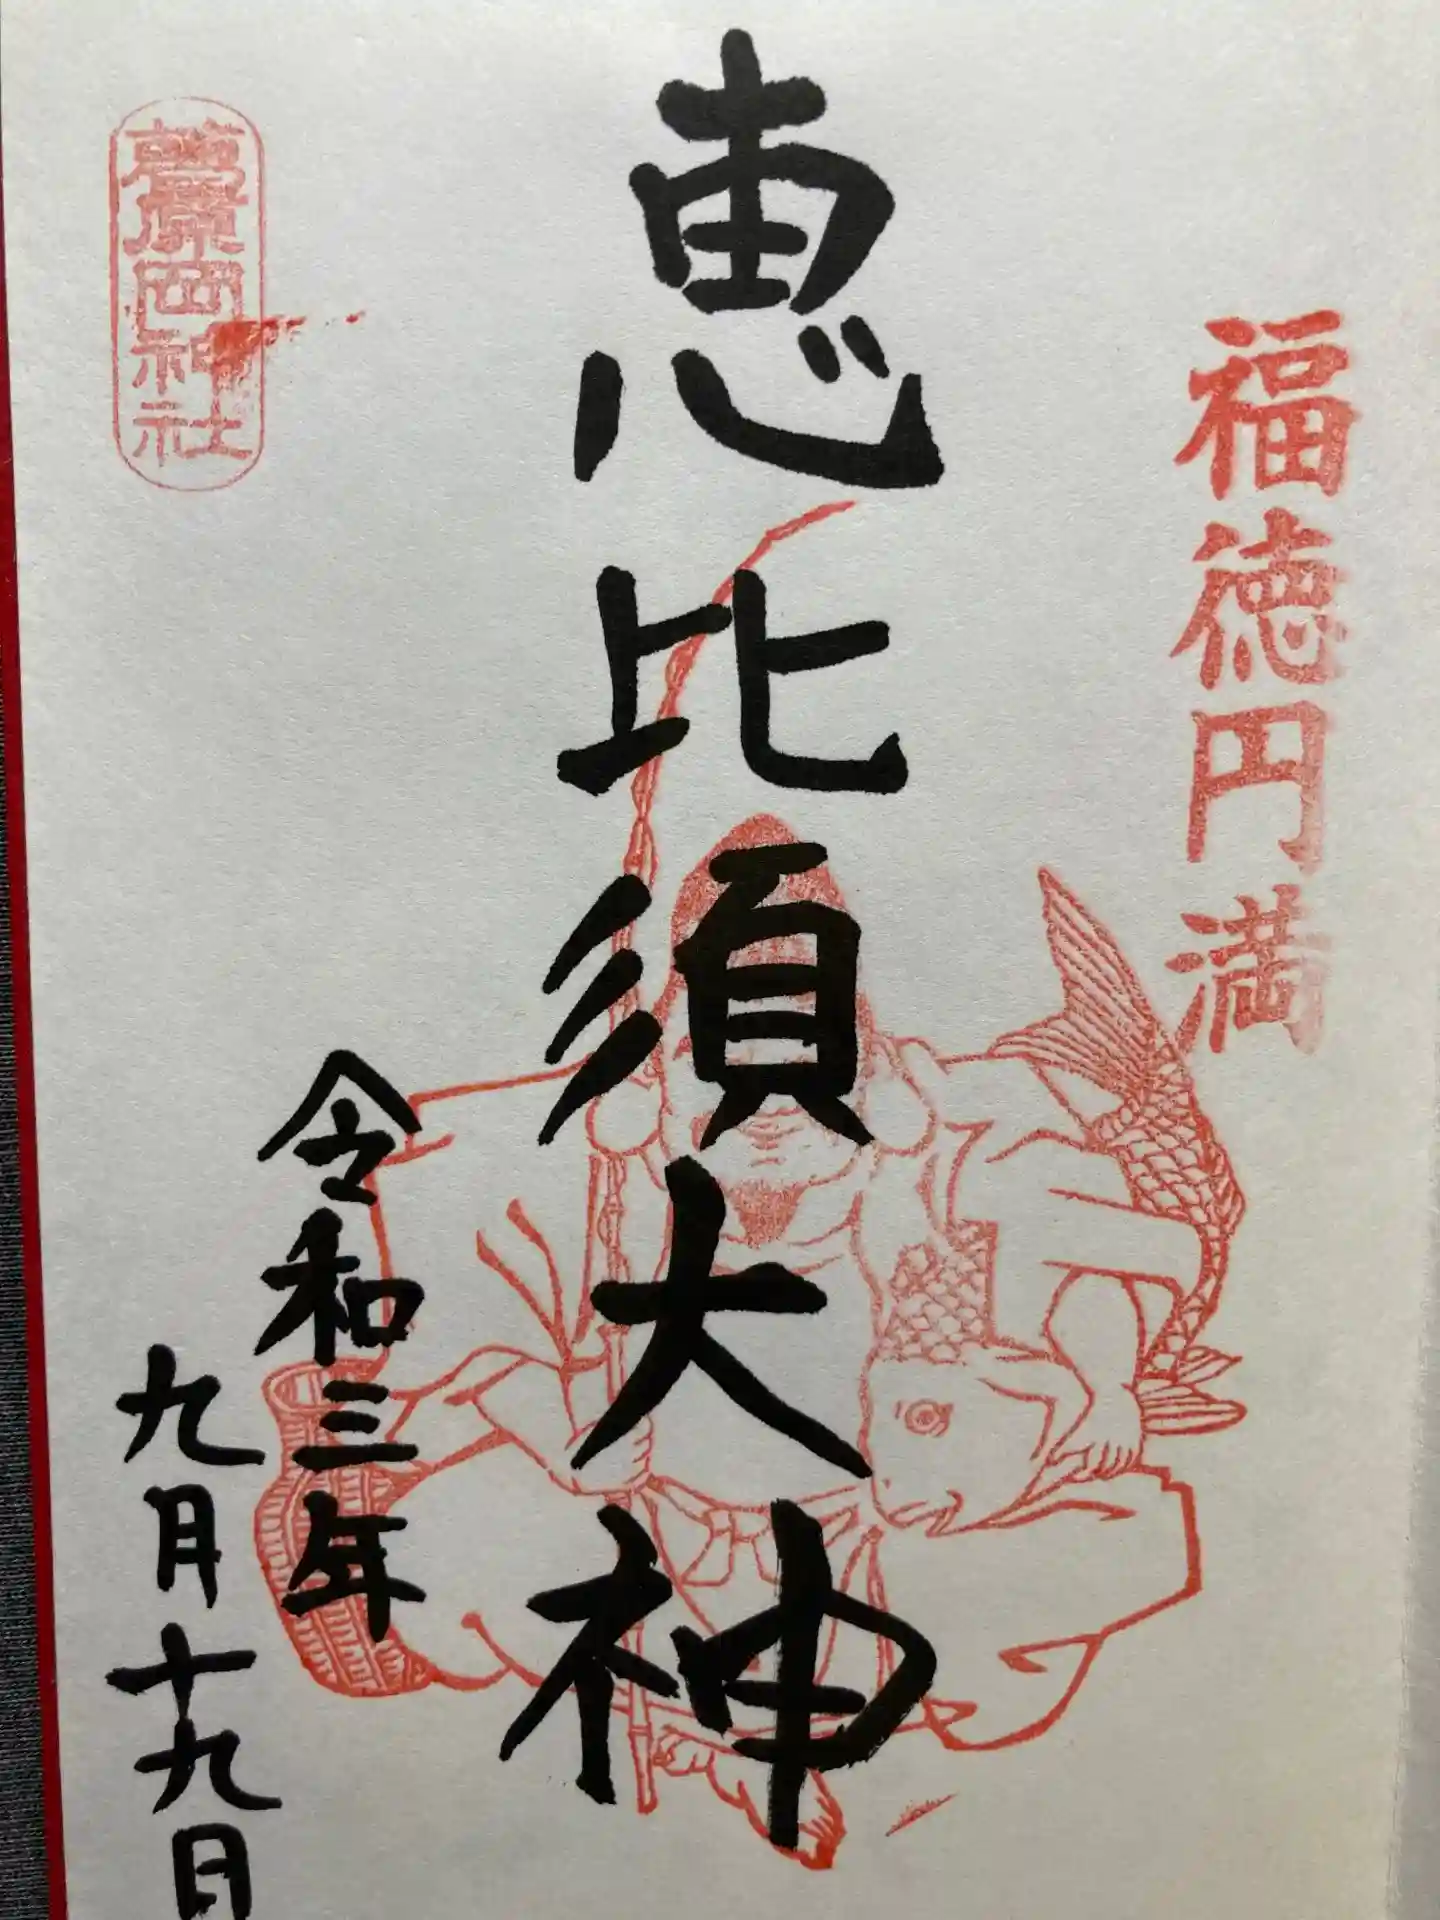 福徳円満
恵比須大神
令和三年
九月十九日
葛原岡神社